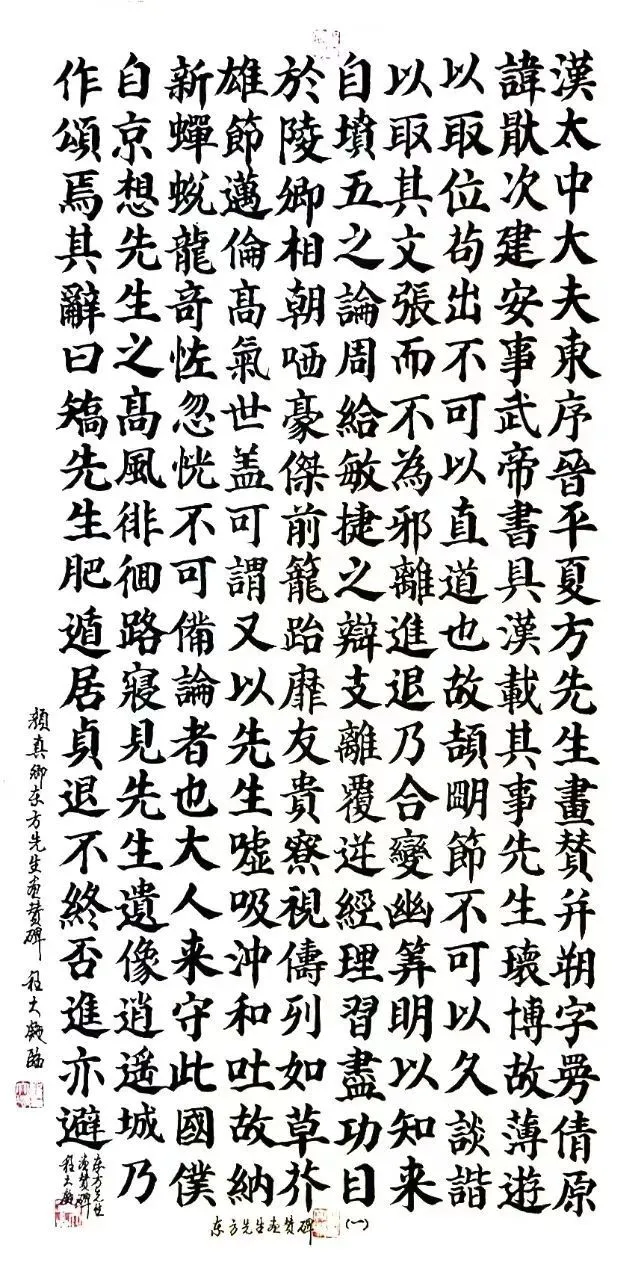 漢太中大夫東序晉平夏方先生畫賛并朔字曼倩原
諱猒次建安事武帝書具漢載其事先生瓌博故薄遊
以取位苟出不可以直道也故頡明節不可以久談諧
以取其文張而不為邪離進退乃合變幽筭明以知来
自墳五之論周給敏捷之辯支離覆逆經理習盡功目
於陵卿相朝哂豪傑前籠跆靡友貴寮視儔列如草芥
雄節邁倫髙氣世盖可謂又以先生嘘吸沖和吐故納
新蟬蛻龍竒恠忽恍不可備論者也大人来守此國僕
自京想先生之髙風徘徊路寢見先生遺像逍遥城乃
作頌焉其辭曰矯先生肥遁居貞退不終否進亦避
东方先生
画赞碑
程大
颜真卿东方先生画赞碑 程大临
东方先生画赞碑 (一)